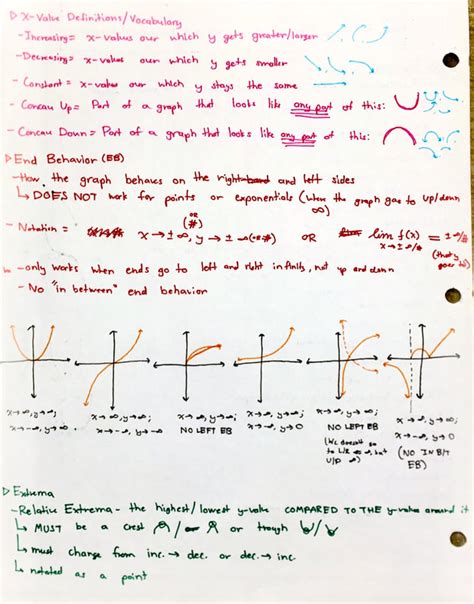 ▷ X-Value Definitions/Vocabulary
- Increasing = x-values our which y gets greater/larger
- Decreasing = x-values our which y gets smaller
- Constant = x-values our which y stays the same
- Concave Up = Part of a graph that looks like any part of this:
- Concave Down = Part of a graph that looks like any part of this:
▷ End Behavior (EB)
- How the graph behaves on the right and left sides
↳ DOES NOT work for points or exponentials (where the graph goes to up/down ∞)
- Notation = x→±∞, y→±∞ (or #) OR lim f(x) = ±∞/#
x→±∞/#
(that y goes to)
- only works when ends go to left and right infinity, not up and down
- No "in between" end behavior
x→∞, y→∞;
x→-∞, y→∞
x→∞, y→∞;
x→-∞, y→-∞
x→∞, y→∞;
NO LEFT EB
x→∞, y→∞;
x→-∞, y→0
x→∞, y→∞;
NO LEFT EB
(We doesn't go to L/R ∞, but U/D ∞)
x→∞, y→-∞;
x→-∞, y→0
(NO IN B/T EB)
▷ Extrema
- Relative Extrema - the highest/lowest y-value COMPARED TO THE y-value around it
↳ MUST be a crest or trough
↳ must change from inc. → dec. or dec. → inc.
↳ notated as a point